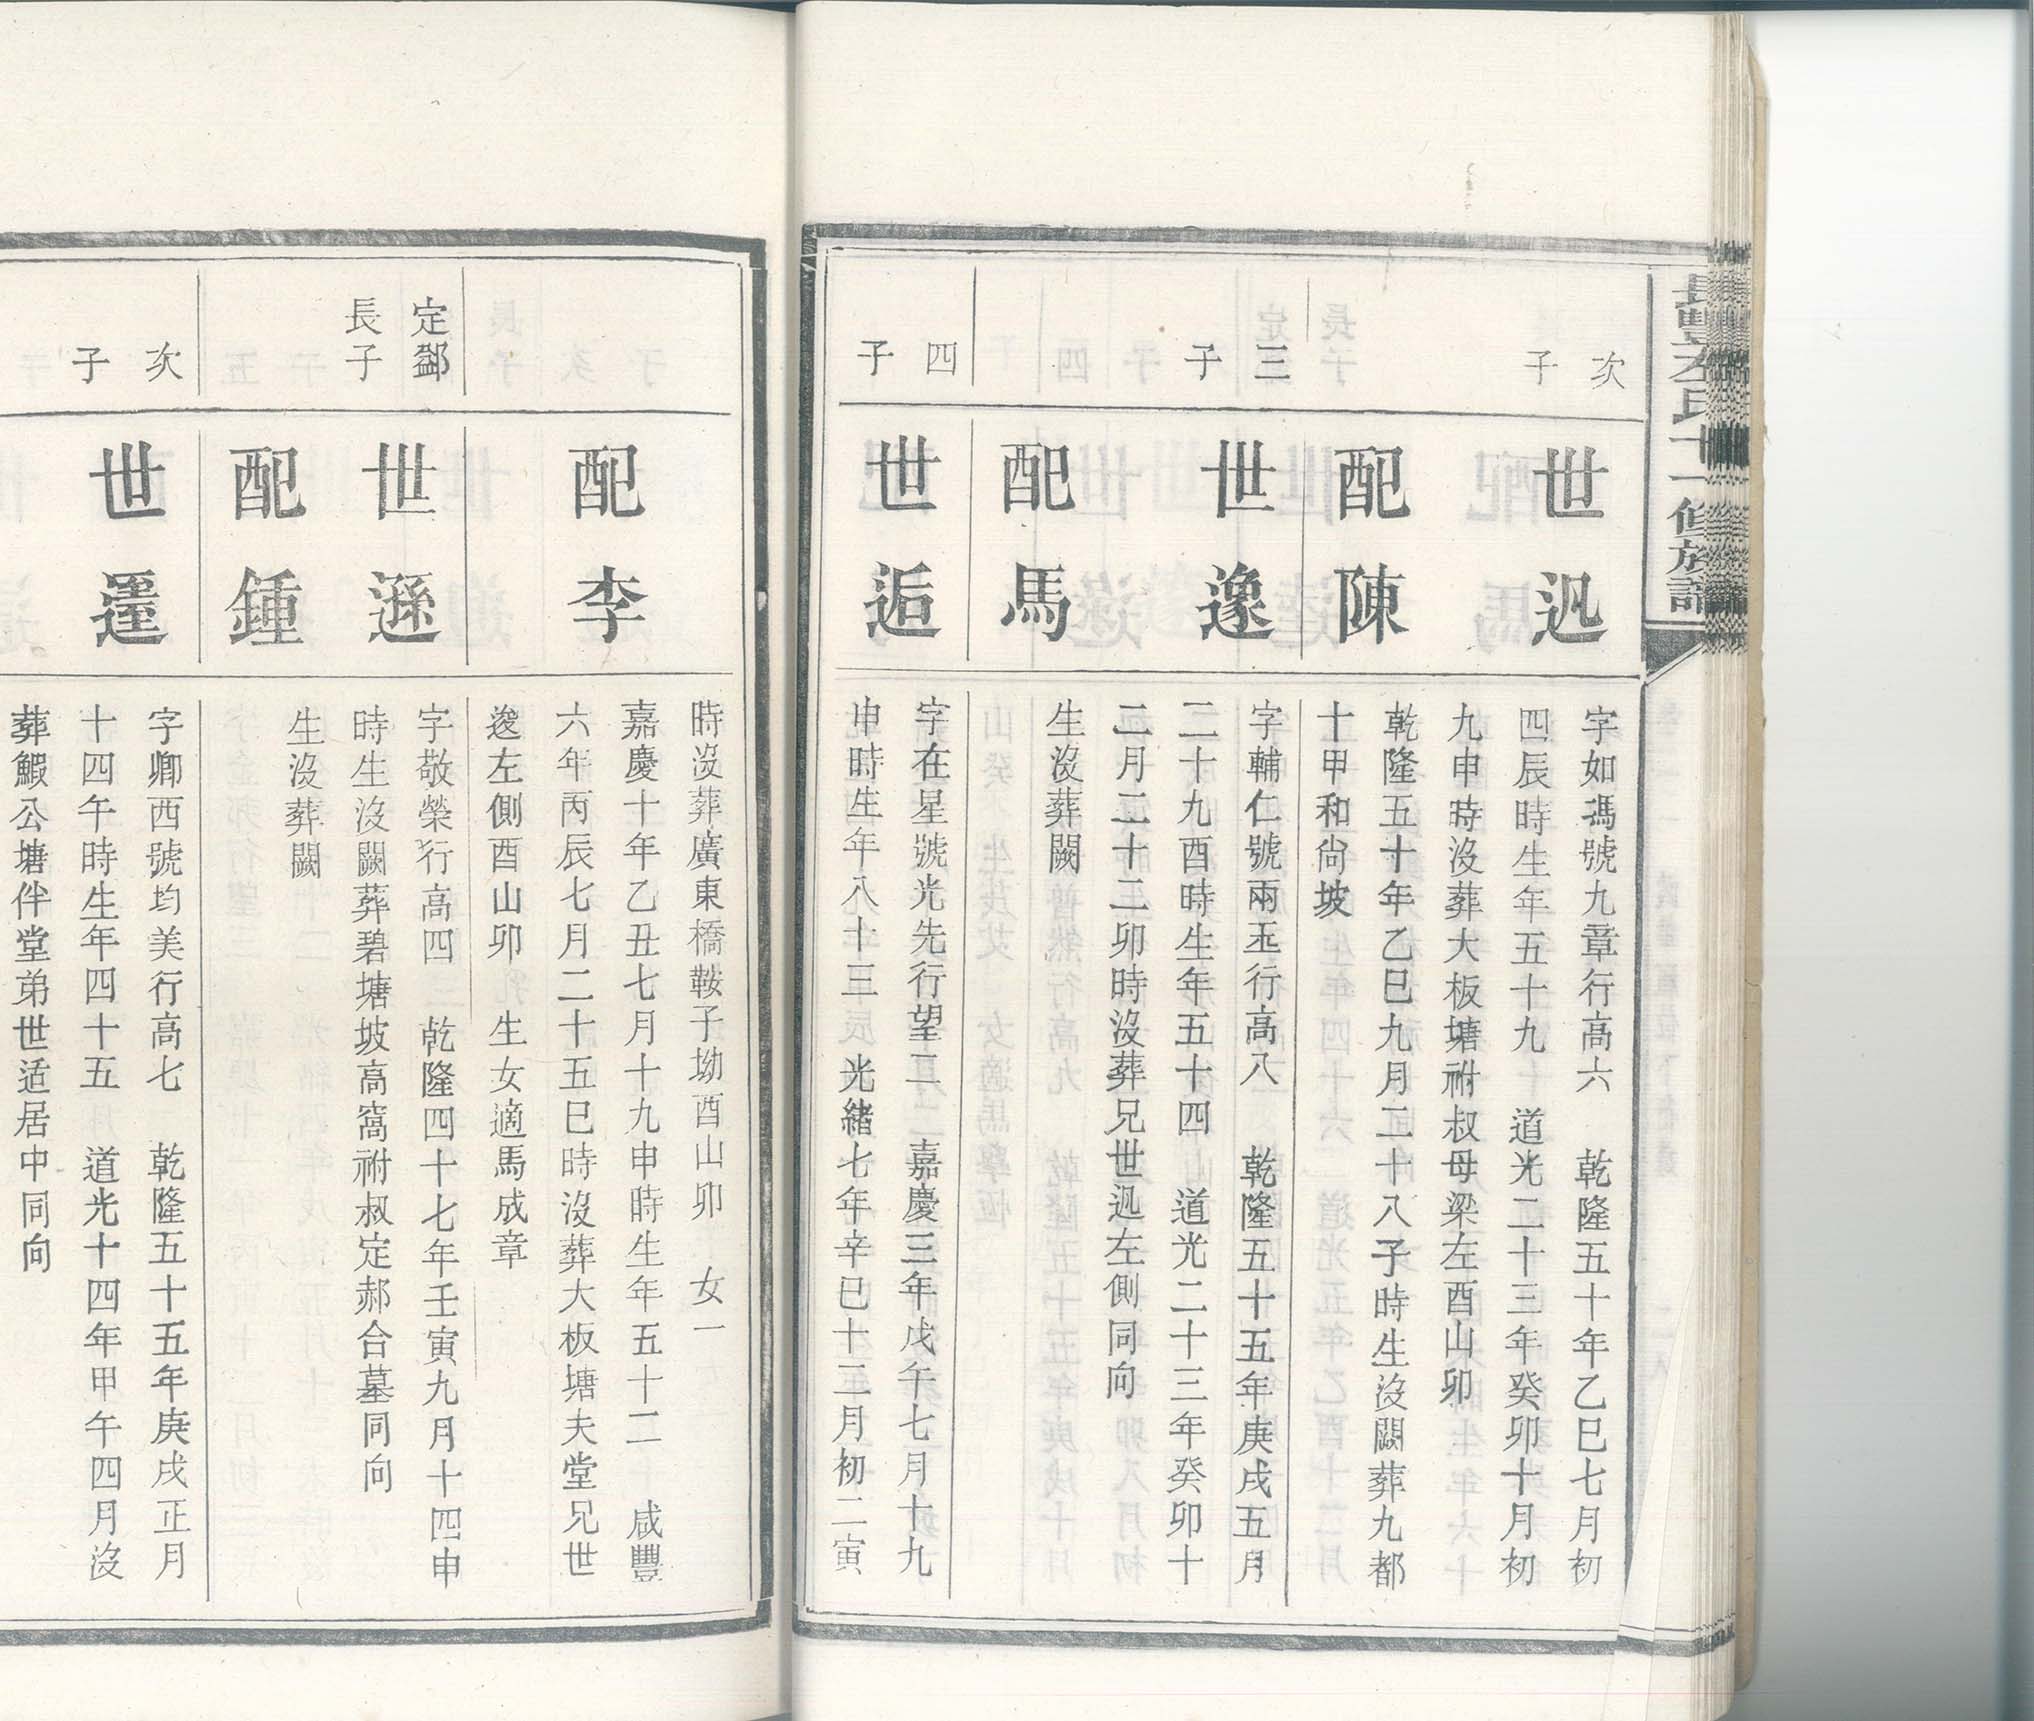 長豐李氏十一修族譜
次
子
世迅
字如瑪號九章行高六　乾隆五十年乙巳七月初
四辰時生年五十九　道光二十三年癸卯十月初
九申時沒葬大板塘祔叔母梁左酉山卯
配陳
乾隆五十年乙巳九月二十八子時生沒闕葬九都
十甲和尙坡
三
子
世邍
字輔仁號兩玉行高八　乾隆五十五年庚戌五月
二十九酉時生年五十四　道光二十三年癸卯十
二月二十二卯時沒葬兄世迅左側同向
配馬
生沒葬闕
四
子
世逅
字在星號光先行望二　嘉慶三年戊午七月十九
申時生年八十三辰　光緒七年辛巳十二月初二寅
時沒葬廣東橋鞍子坳酉山卯　女一
配李
嘉慶十年乙丑七月十九申時生年五十二　咸豐
六年丙辰七月二十五巳時沒葬大板塘夫堂兄世
逡左側酉山卯　生女適馬成章
定鄒
長子
世遜
字敬榮行高四　乾隆四十七年壬寅九月十四申
時生沒闕葬碧塘坡高窩祔叔定郝合墓同向
配鍾
生沒葬闕
次
子
世邏
字卿西號均美行高七　乾隆五十五年庚戌正月
十四午時生年四十五　道光十四年甲午四月沒
葬鰕公塘伴堂弟世适居中同向